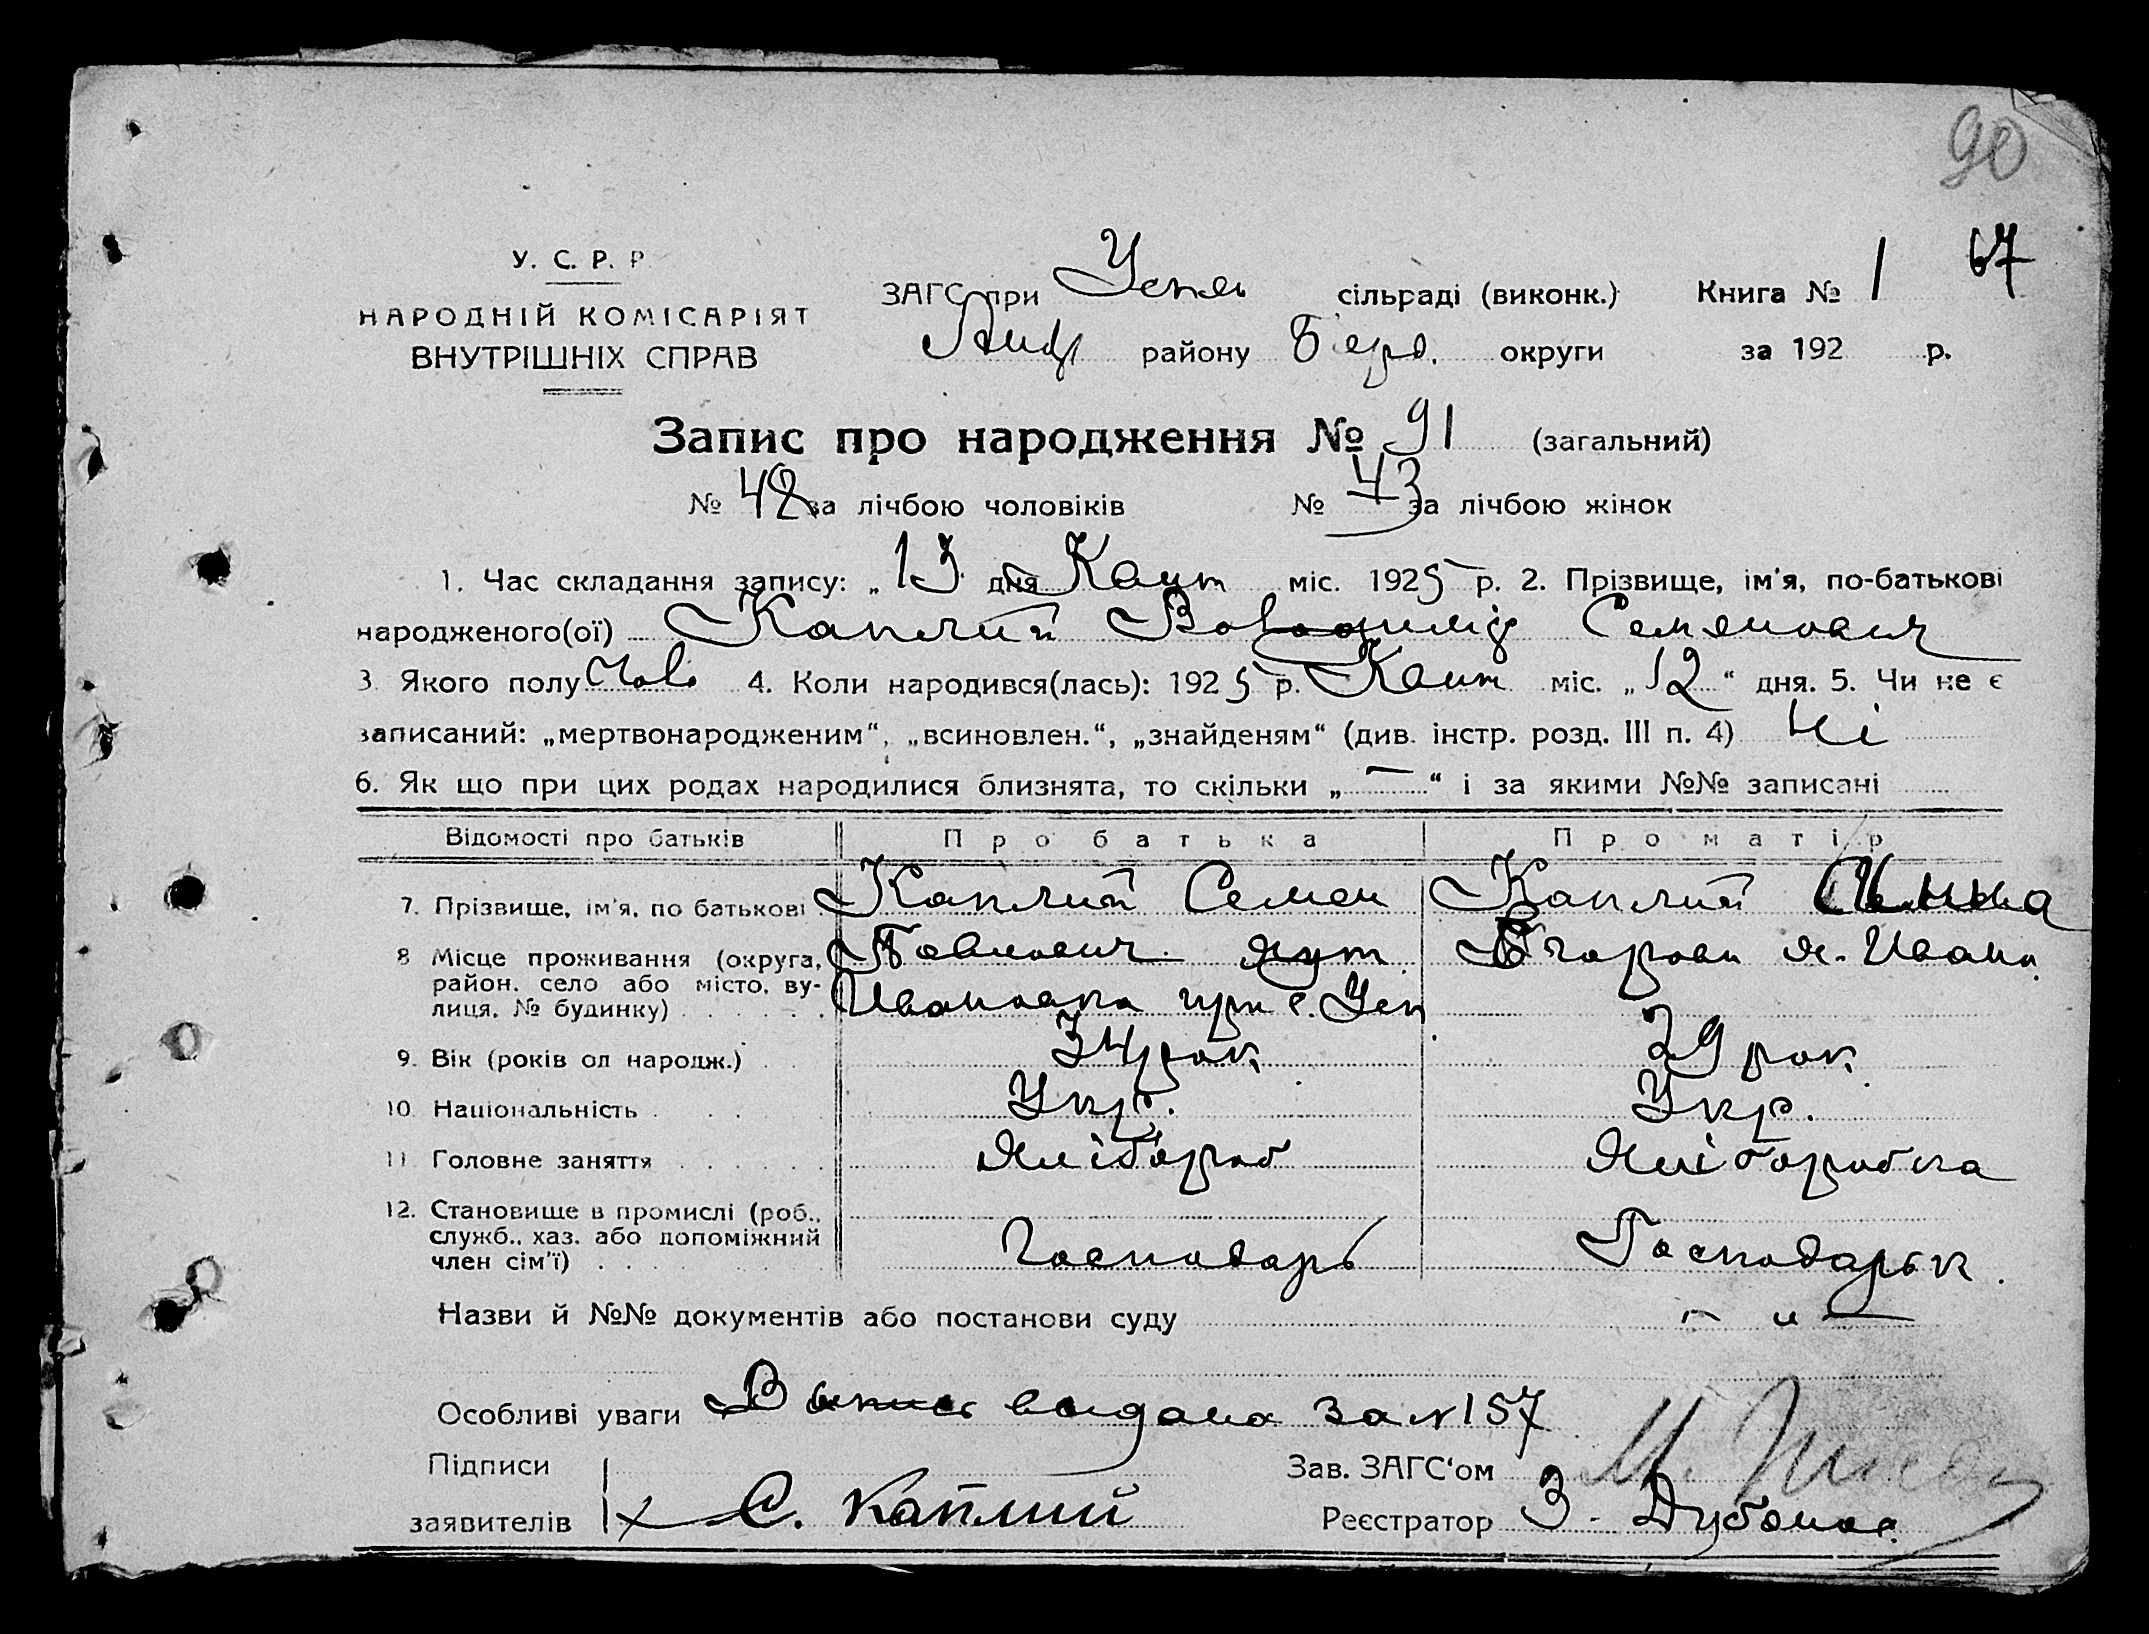 90
У. С. Р. Р.
НАРОДНІЙ КОМІСАРІЯТ
ВНУТРІШНІХ СПРАВ
ЗАГС при Успен сільраді (виконк.) Книга № 1 67
району Берд. округи за 192 р.
Запис про народження № 91 (загальний)
№ 48 за лічбою чоловіків № 43 за лічбою жінок
1. Час складання запису: „ 13 дня Квіт міс. 1925 р. 2. Прізвище, ім'я, по-батькові
народженого(ої) Каплий Володимір Семянович
3. Якого полу Чолов 4. Коли народився(лась): 1925 р. Квіт міс. „ 12 “ дня. 5. Чи не є
записаний: „мертвонародженим“, „всиновлен.“, „знайденям“ (див. інстр. розд. III п. 4) Ні
6. Як що при цих родах народилися близнята, то скільки „ — “ і за якими №№ записані
Відомості про батьків Про батька Про матір
7. Прізвище, ім'я, по батькові Каплий Семен Каплий
8 Місце проживання (округа, Павлович хут. Егоровн х. Ивано
район, село або місто, ву-
лиця, № будинку) Ивановка при с. Усп
9. Вік (років од народж.) 34 рок 29 рок
10. Національність Укр. Укр.
11. Головне заняття Хлібороб Хліборобка
12. Становище в промислі (роб.,
служб., хаз. або допоміжний
член сім'ї) Господарь Господарьк
Назви й №№ документів або постанови суду — „ —
Особливі уваги Выпись выдана за № 157
Підписи Зав. ЗАГС‘ом
заявителів х С. Каплий Реєстратор З. Дубо